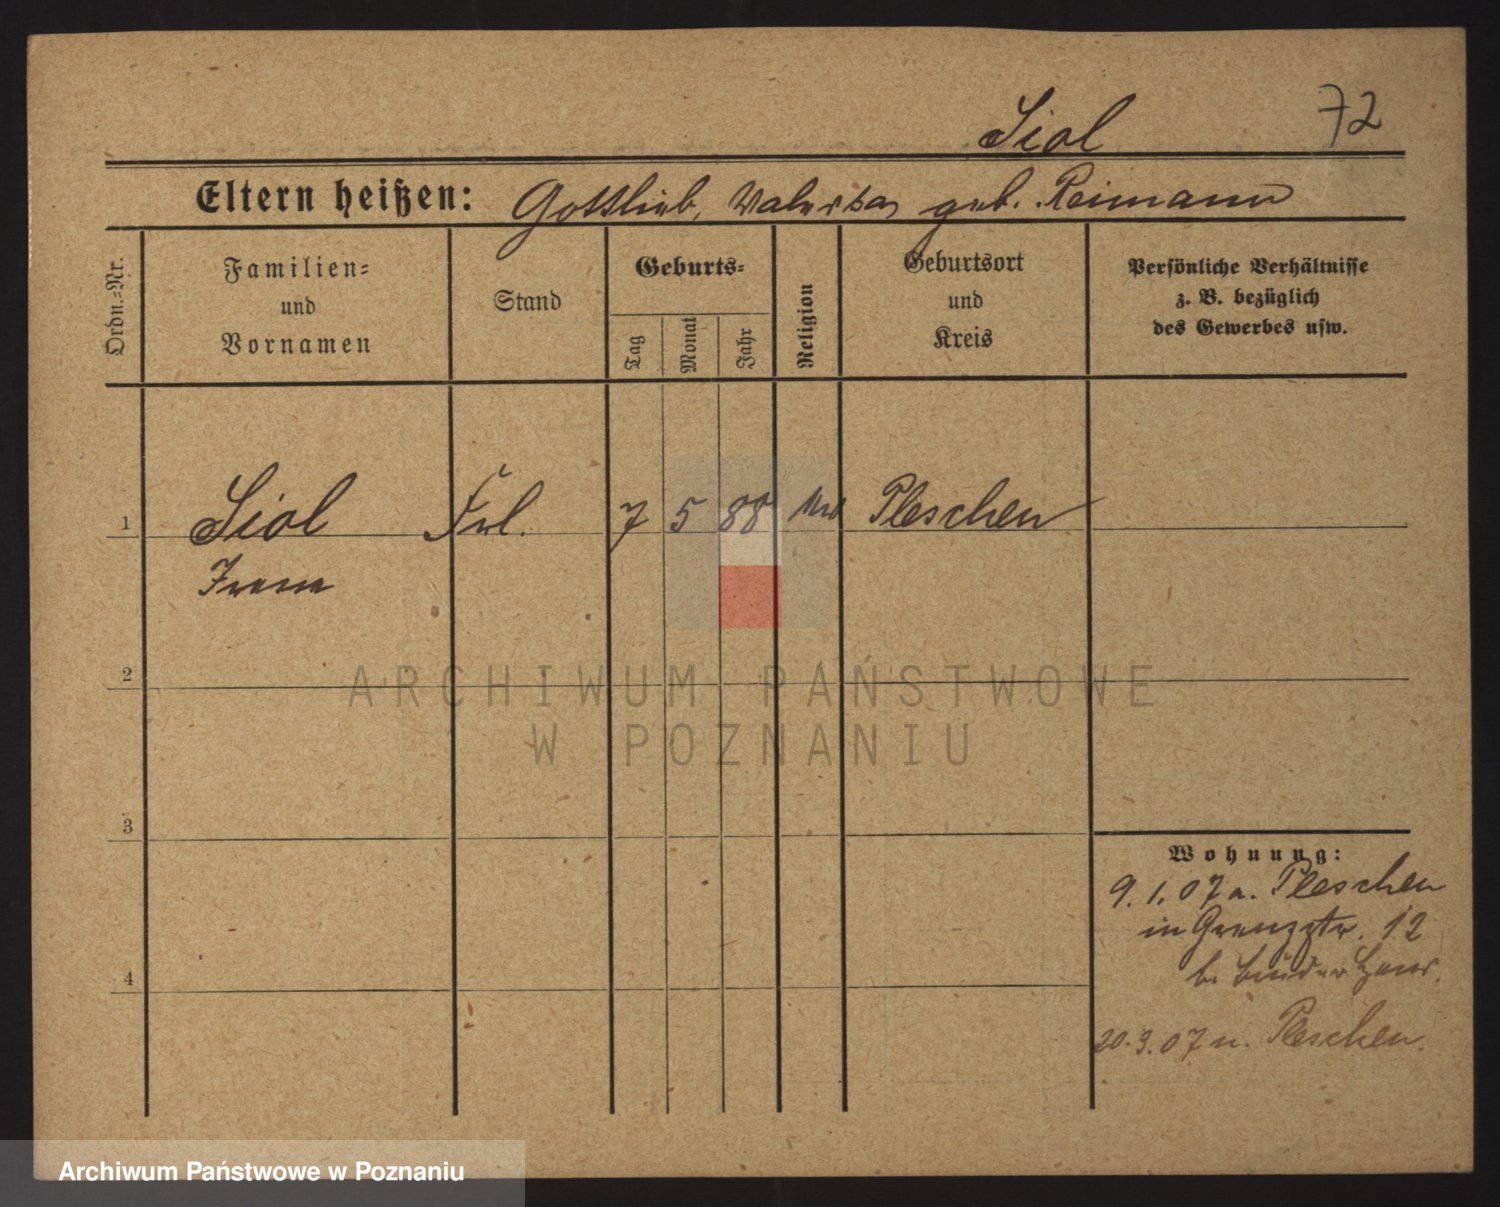 Siol 72
Eltern heißen: Gottlieb, Valeska geb. Reimann
Ordn.=Nr.
Familien=
und
Vornamen
Stand
Geburts=
Tag
Monat
Jahr
Religion
Geburtsort
und
Kreis
Persönliche Verhältnisse
z. B. bezüglich
des Gewerbes usw.
1 Siol Frl. 7 5 88 Pleschen
Irene
2
3
4
Wohnung:
9.1.07 a. Pleschen
in Grenzstr. 12
b.
20.3.07 n. Pleschen.
ARCHIWUM PAŃSTWOWE
W POZNANIU
Archiwum Państwowe w Poznaniu